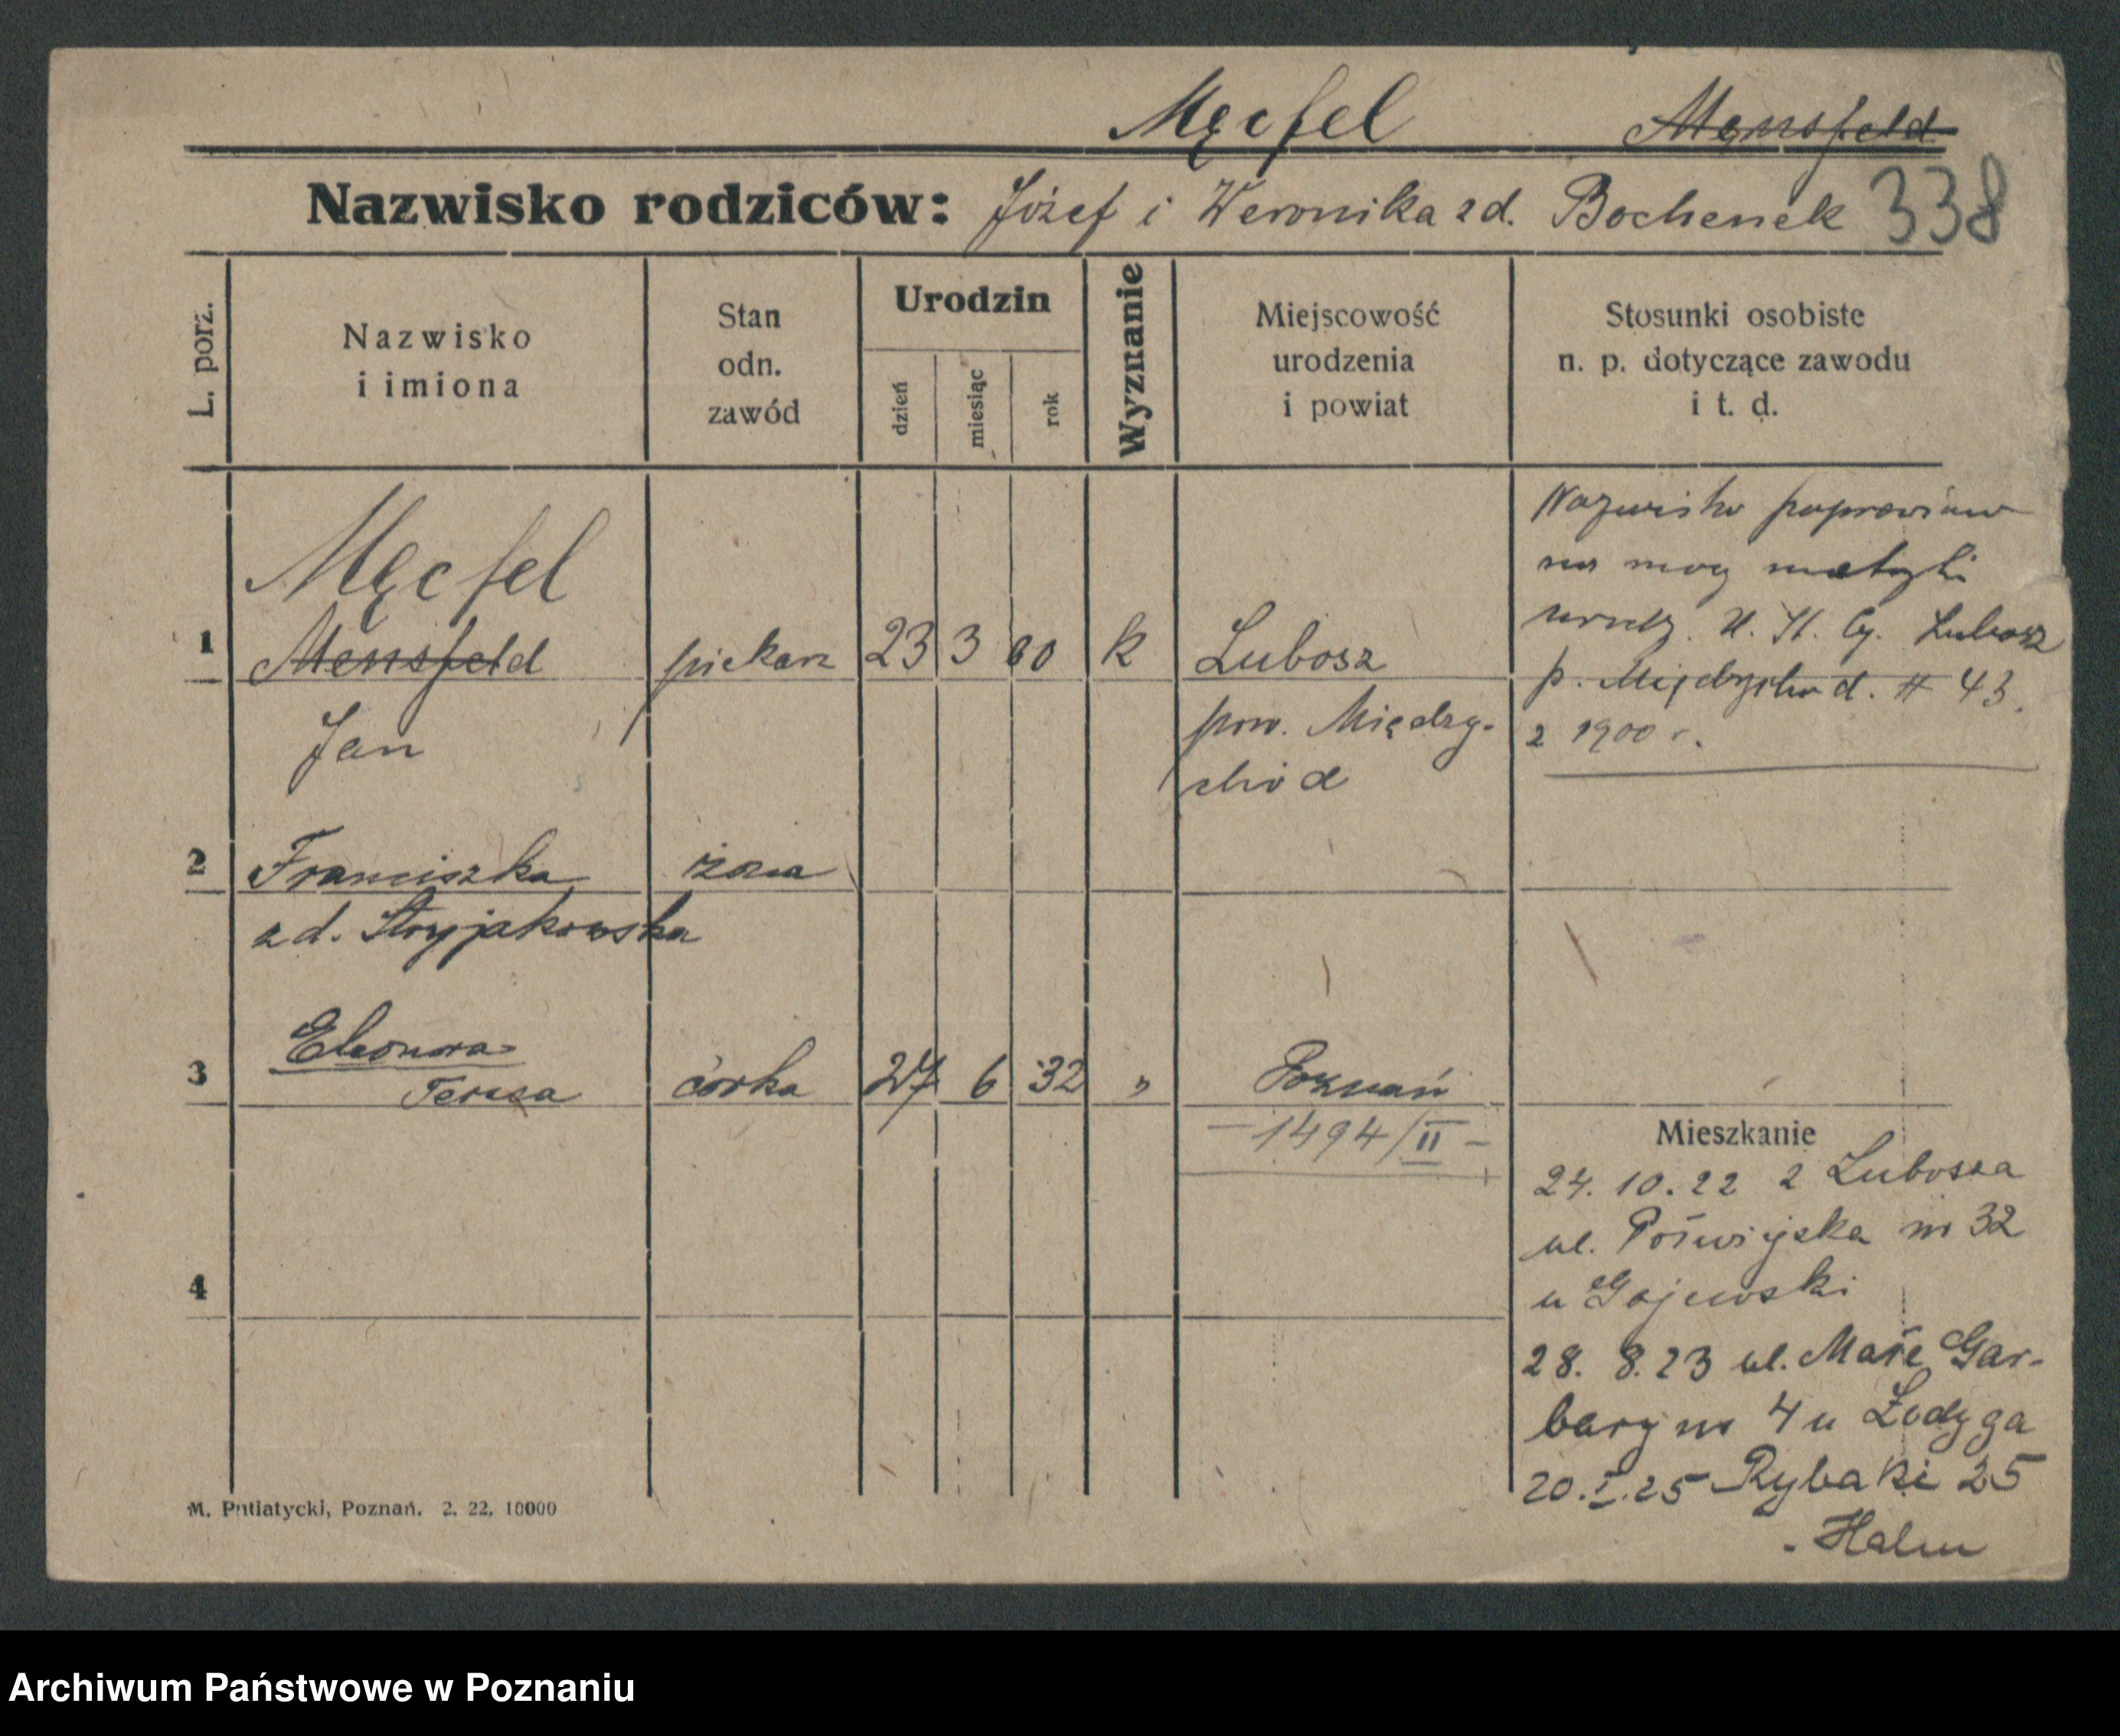 Męcfel Mensfeld
Nazwisko rodziców: Józef i Weronika zd. Bochenek 338
L. porz.
Nazwisko
i imiona
Stan
odn.
zawód
Urodzin
dzień
miesiąc
rok
Wyznanie
Miejscowość
urodzenia
i powiat
Stosunki osobiste
n. p. dotyczące zawodu
i t. d.
Męcfel
1 Mensfeld piekarz 23 3 00 k Lubosz
Jan pow. Między-
chód
Nazwisko poprawiono
na mocy metryki
urodz. U. St. Cy. Lubosz
p. Międzychód. # 43.
z 1900 r.
2 Franciszka żona
zd. Stryjakowska
Eleonora
3 Teresa córka 27 6 32 " Poznań
— 1494/II —
Mieszkanie
24. 10. 22 z Lubosza
ul. Półwiejska nr 32
u Gajewski
28. 8. 23 ul. Małe Gar-
bary nr 4 u Łodyga
20. I. 25 Rybaki 25
- Halm
4
M. Putiatycki, Poznań. 2. 22. 10000
Archiwum Państwowe w Poznaniu